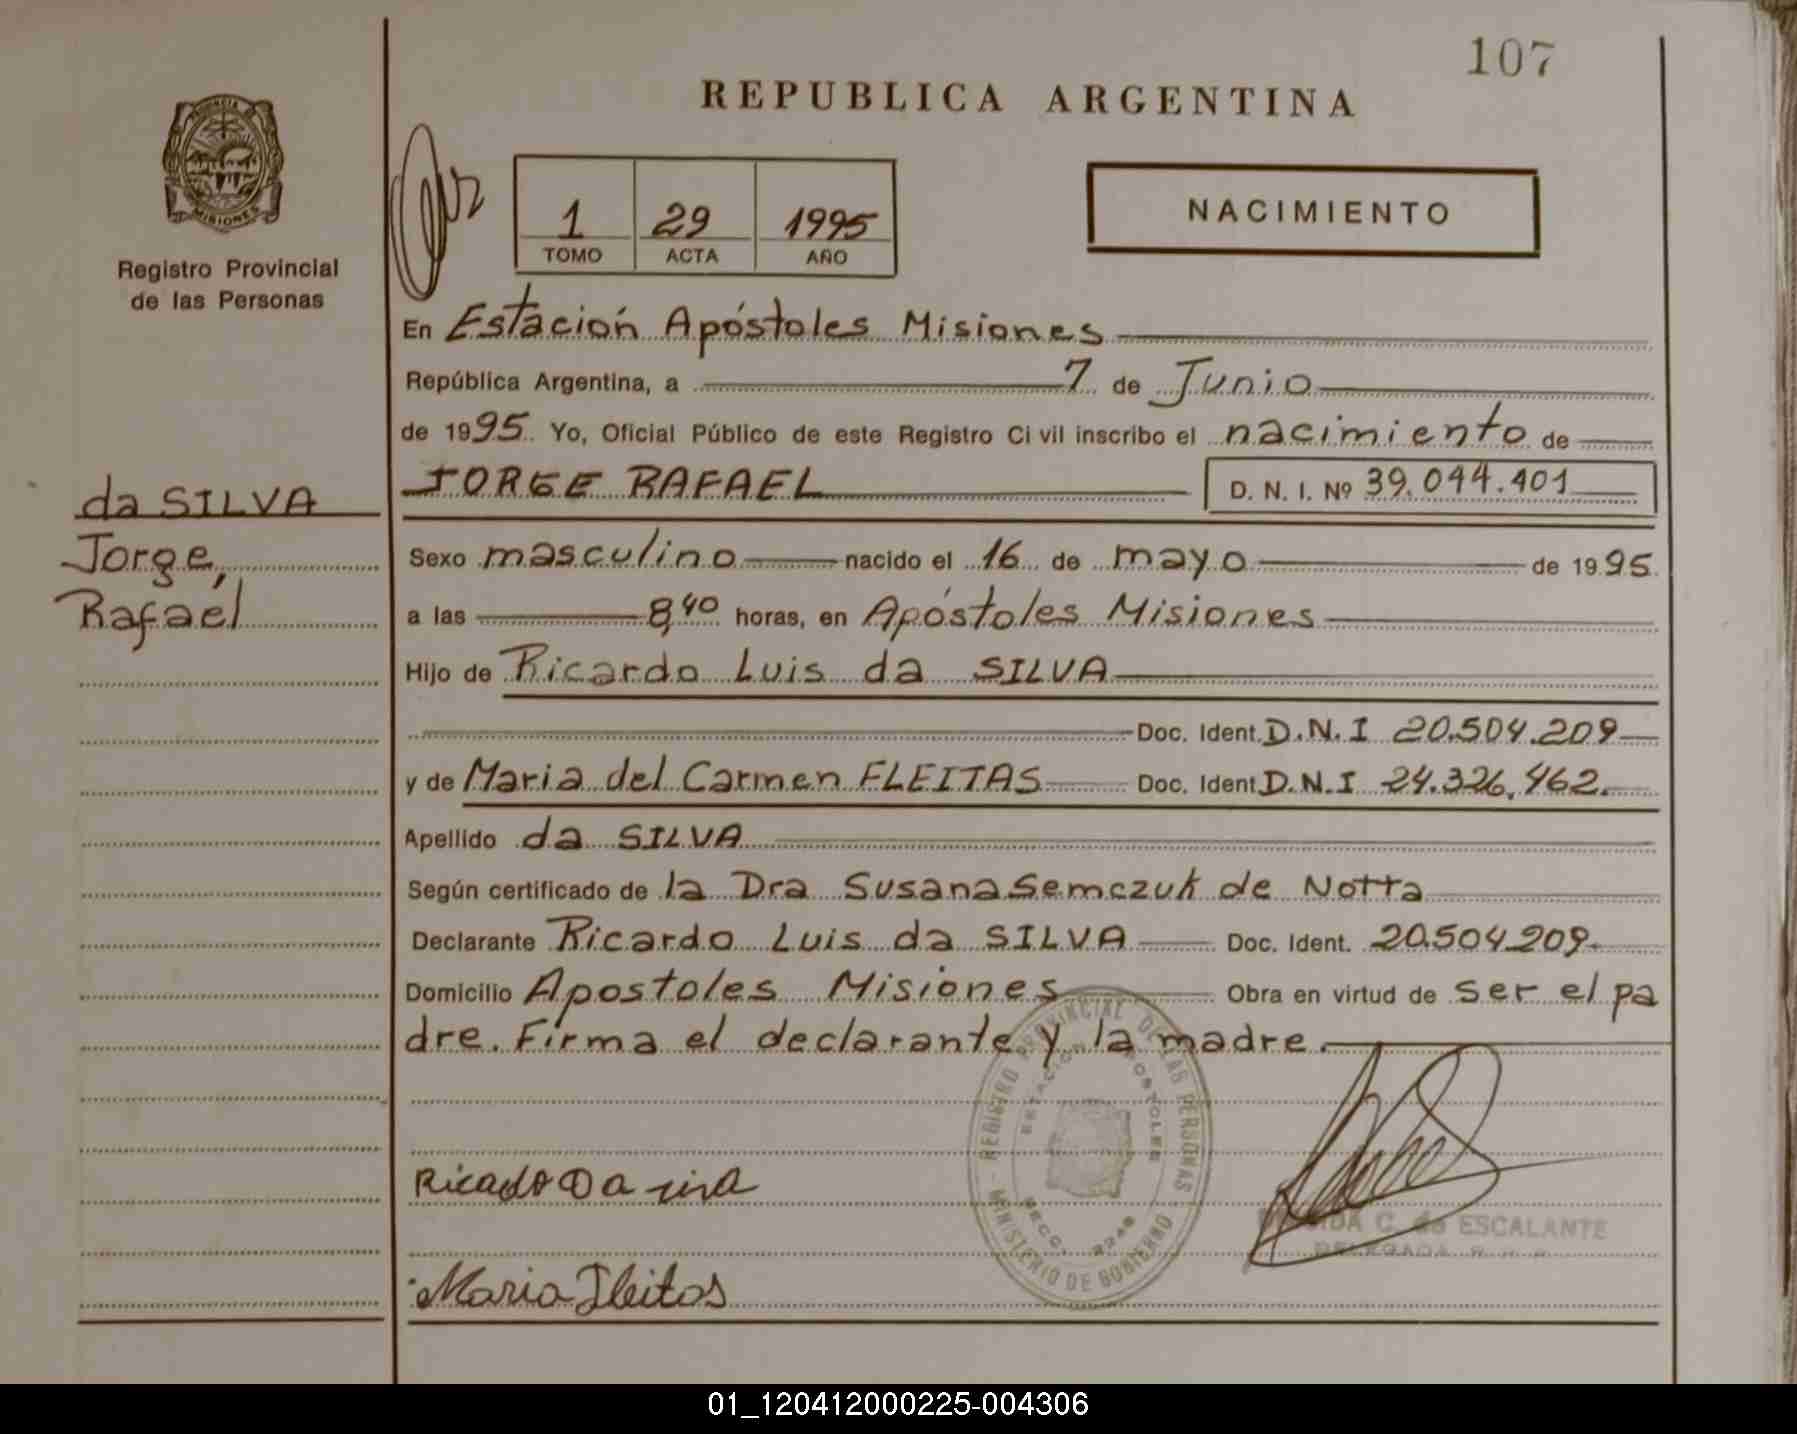 107
REPUBLICA ARGENTINA
PROVINCIA
MISIONES
Registro Provincial
de las Personas
1 29 1995
TOMO ACTA AÑO
NACIMIENTO
En Estación Apóstoles Misiones
República Argentina, a 7 de Junio
de 1995. Yo, Oficial Público de este Registro Civil inscribo el nacimiento de
JORGE RAFAEL D. N. I. Nº 39.044.401
da SILVA
Jorge,
Rafael
Sexo masculino nacido el 16 de mayo de 1995
a las 8,40 horas, en Apóstoles Misiones
Hijo de Ricardo Luis da SILVA
Doc. Ident. D.N.I 20.504.209
y de Maria del Carmen FLEITAS Doc. Ident. D.N.I 24.326.462.
Apellido da SILVA
Según certificado de la Dra Susana Semczuk de Notta
Declarante Ricardo Luis da SILVA Doc. Ident. 20.504.209.
Domicilio Apostoles Misiones Obra en virtud de ser el pa
dre. Firma el declarante y la madre.
REGISTRO PROVINCIAL DE LAS PERSONAS
ESTACION APOSTOLES
SECC. 2248
MINISTERIO DE GOBIERNO
C. de ESCALANTE
DELEGADA
Maria Fleitas
01_120412000225-004306